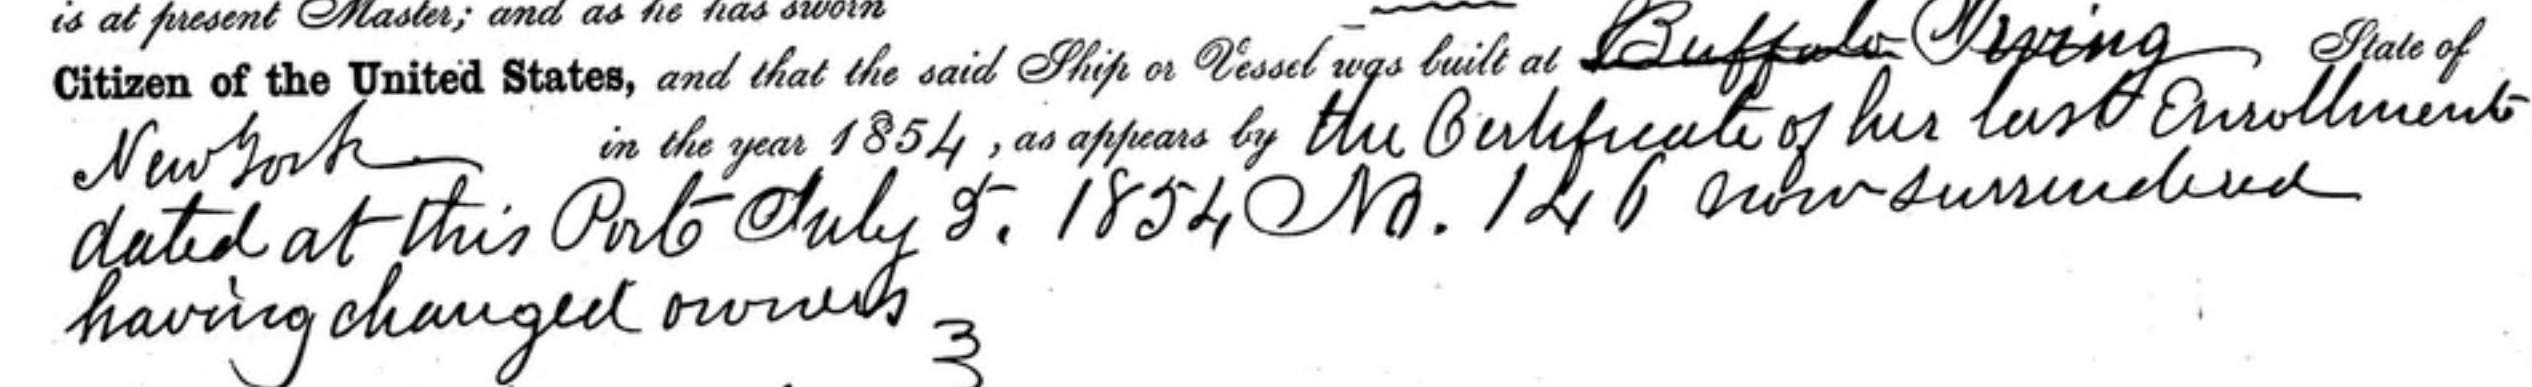 is at present Master; and as he has sworn
Citizen of the United States, and that the said Ship or Vessel was built at Buffalo Irving State of
New York in the year 1854, as appears by the Certificate of her last Enrollment
dated at this Port July 5. 1854 No. 146 now surrendered
having changed owners
3